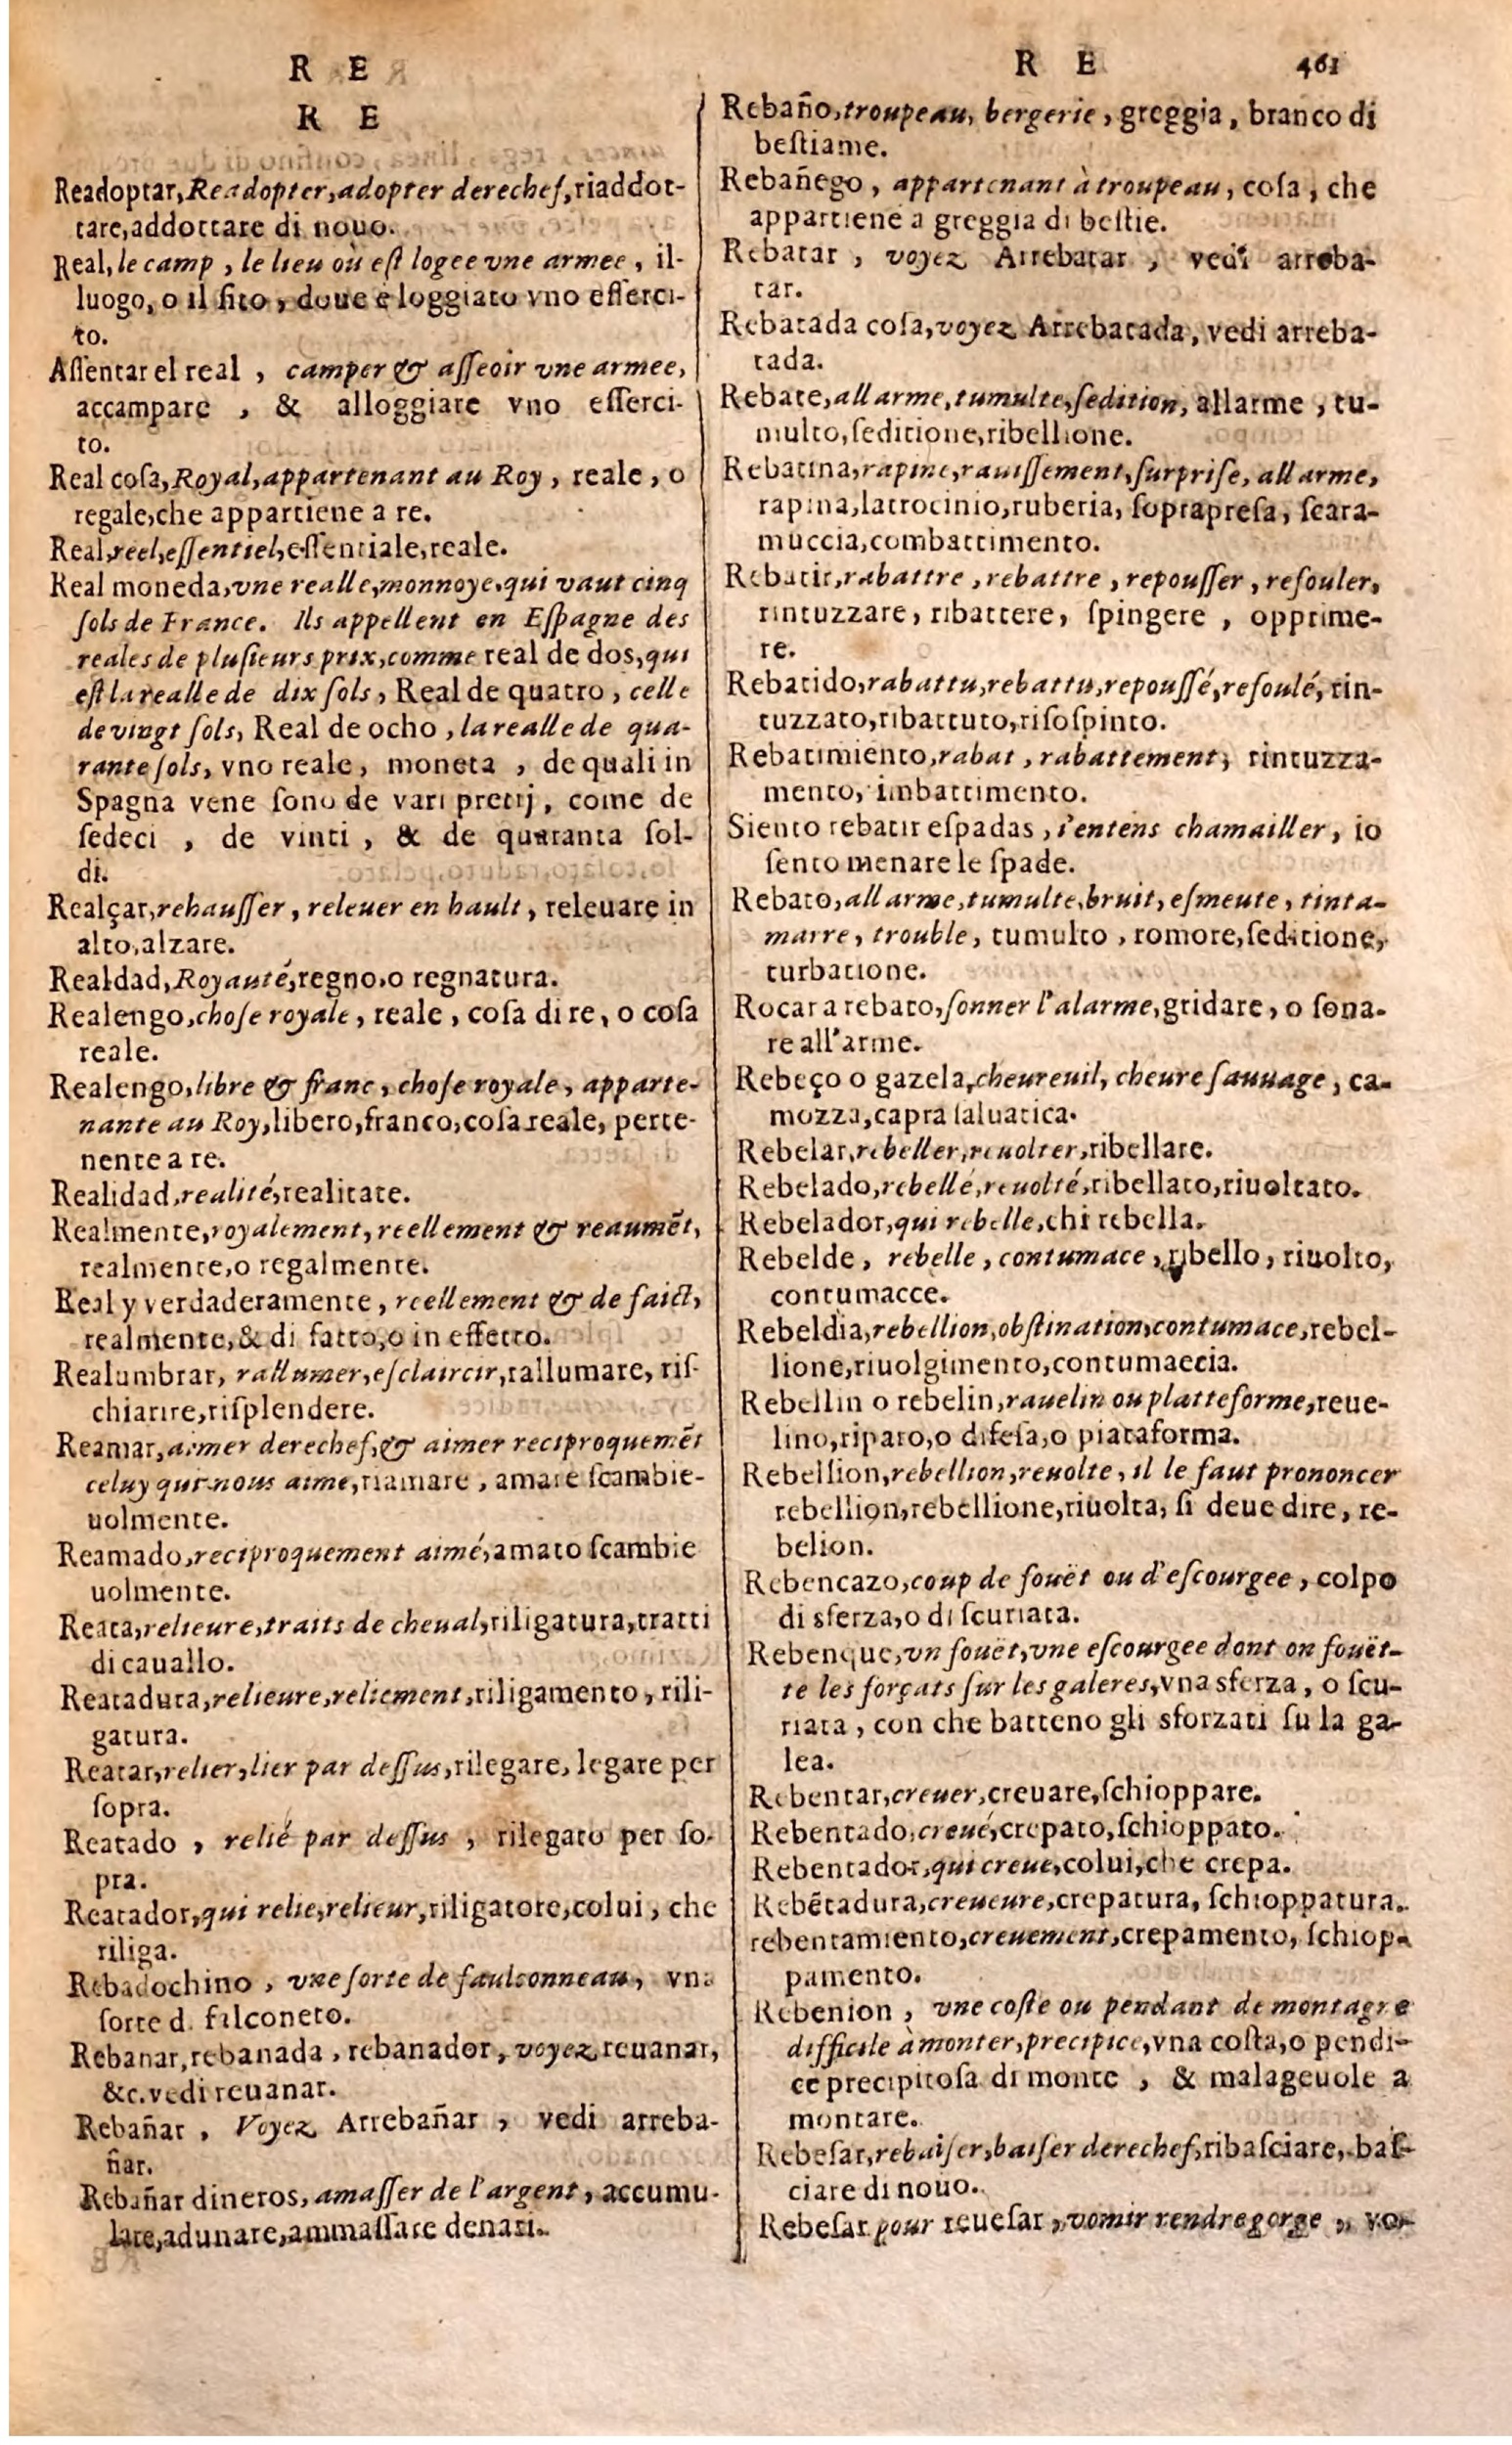 R E
R E
Readoptar, Readopter, adopter derechef, riaddot-
tare, addottare di nouo.
Real, le camp, le lieu où eſt logee vne armee, il-
luogo, o il ſito, doue è loggiato vno eſſerci-
to.
Aſſentar el real, camper & aſſeoir vne armee,
accampare, & alloggiare vno eſſerci-
to.
Real coſa, Royal, appartenant au Roy, reale, o
regale, che appartiene a re.
Real, reel, eſſentiel, eſſentiale, reale.
Real moneda, vne realle, monnoye, qui vaut cinq
ſols de France. Ils appellent en Eſpagne des
reales de pluſieurs prix, comme real de dos, qui
eſt la realle de dix ſols, Real de quatro, celle
de vingt ſols, Real de ocho, la realle de qua-
rante ſols, vno reale, moneta, de quali in
Spagna vene ſono de vari prettj, come de
ſedeci, de vinti, & de quaranta ſol-
di.
Realçar, rehauſſer, releuer en hault, releuare in
alto, alzare.
Realdad, Royauté, regno, o regnatura.
Realengo, choſe royale, reale, coſa di re, o coſa
reale.
Realengo, libre & franc, choſe royale, apparte-
nante au Roy, libero, franco, coſa reale, perte-
nente a re.
Realidad, realité, realitate.
Realmente, royalement, reellement & reaumēt,
realmente, o regalmente.
Real y verdaderamente, reellement & de faict,
realmente, & di fatto, o in effetto.
Realumbrar, rallumer, eſclaircir, rallumare, riſ-
chiarire, riſplendere.
Reamar, aimer derechef, & aimer reciproquemēt
celuy qui nous aime, riamare, amare ſcambie-
uolmente.
Reamado, reciproquement aimé, amato ſcambie
uolmente.
Reata, relieure, traits de cheual, riligatura, tratti
di cauallo.
Reatadura, relieure, reliement, riligamento, rili-
gatura.
Reatar, relier, lier par deſſus, rilegare, legare per
ſopra.
Reatado, relié par deſſus, rilegato per ſo-
pra.
Reatador, qui relie, relieur, riligatore, colui, che
riliga.
Rebadochino, vne ſorte de faulconneau, vna
ſorte d. falconeto.
Rebanar, rebanada, rebanador, voyez reuanar,
&c. vedi reuanar.
Rebañar, Voyez Arrebañar, vedi arreba-
ñar.
Rebañar dineros, amaſſer de l'argent, accumu-
lare, adunare, ammaſſare denari.
R E 461
Rebaño, troupeau, bergerie, greggia, branco di
beſtiame.
Rebañego, appartenant à troupeau, coſa, che
appartiene a greggia di beſtie.
Rebatar, voyez Arrebatar, vedi arreba-
tar.
Rebatada coſa, voyez Arrebatada, vedi arreba-
tada.
Rebate, all arme, tumulte, ſedition, allarme, tu-
multo, ſeditione, ribellione.
Rebatina, rapine, rauiſſement, ſurpriſe, all arme,
rapina, latrocinio, ruberia, ſoprapreſa, ſcara-
muccia, combattimento.
Rebatir, rabattre, rebattre, repouſſer, refouler,
rintuzzare, ribattere, ſpingere, opprime-
re.
Rebatido, rabattu, rebattu, repouſſé, refoulé, rin-
tuzzato, ribattuto, riſoſpinto.
Rebatimiento, rabat, rabattement, rintuzza-
mento, imbattimento.
Siento rebatir eſpadas, i'entens chamailler, io
ſento menare le ſpade.
Rebato, all arme, tumulte, bruit, eſmeute, tinta-
marre, trouble, tumulto, romore, ſeditione,
turbatione.
Rocar a rebato, ſonner l'alarme, gridare, o ſona-
re all'arme.
Rebeço o gazela, cheureuil, cheure ſauuage, ca-
mozza, capra ſaluatica.
Rebelar, rebeller, reuolter, ribellare.
Rebelado, rebellé, reuolté, ribellato, riuoltato.
Rebelador, qui rebelle, chi rebella.
Rebelde, rebelle, contumace, ribello, riuolto,
contumacce.
Rebeldia, rebellion, obſtination, contumace, rebel-
lione, riuolgimento, contumaecia.
Rebellin o rebelin, rauelin ou platteforme, reue-
lino, riparo, o difeſa, o piataforma.
Rebellion, rebellion, reuolte, il le faut prononcer
rebellion, rebellione, riuolta, ſi deue dire, re-
belion.
Rebencazo, coup de fouët ou d'eſcourgee, colpo
di sferza, o di ſcuriata.
Rebenque, vn fouët, vne eſcourgee dont on fouët-
te les forçats ſur les galeres, vna sferza, o ſcu-
riata, con che batteno gli sforzati ſu la ga-
lea.
Rebentar, creuer, creuare, ſchioppare.
Rebentado, creué, crepato, ſchioppato.
Rebentador, qui creue, colui, che crepa.
Rebētadura, creueure, crepatura, ſchioppatura.
rebentamiento, creuement, crepamento, ſchiop-
pamento.
Rebenion, vne coſte ou pendant de montagne
difficile à monter, precipice, vna coſta, o pendi-
ce precipitoſa di monte, & malageuole a
montare.
Rebeſar, rebaiſer, baiſer derechef, ribaſciare, baſ-
ciare di nouo.
Rebeſar pour reueſar, vomir rendre gorge, vo-